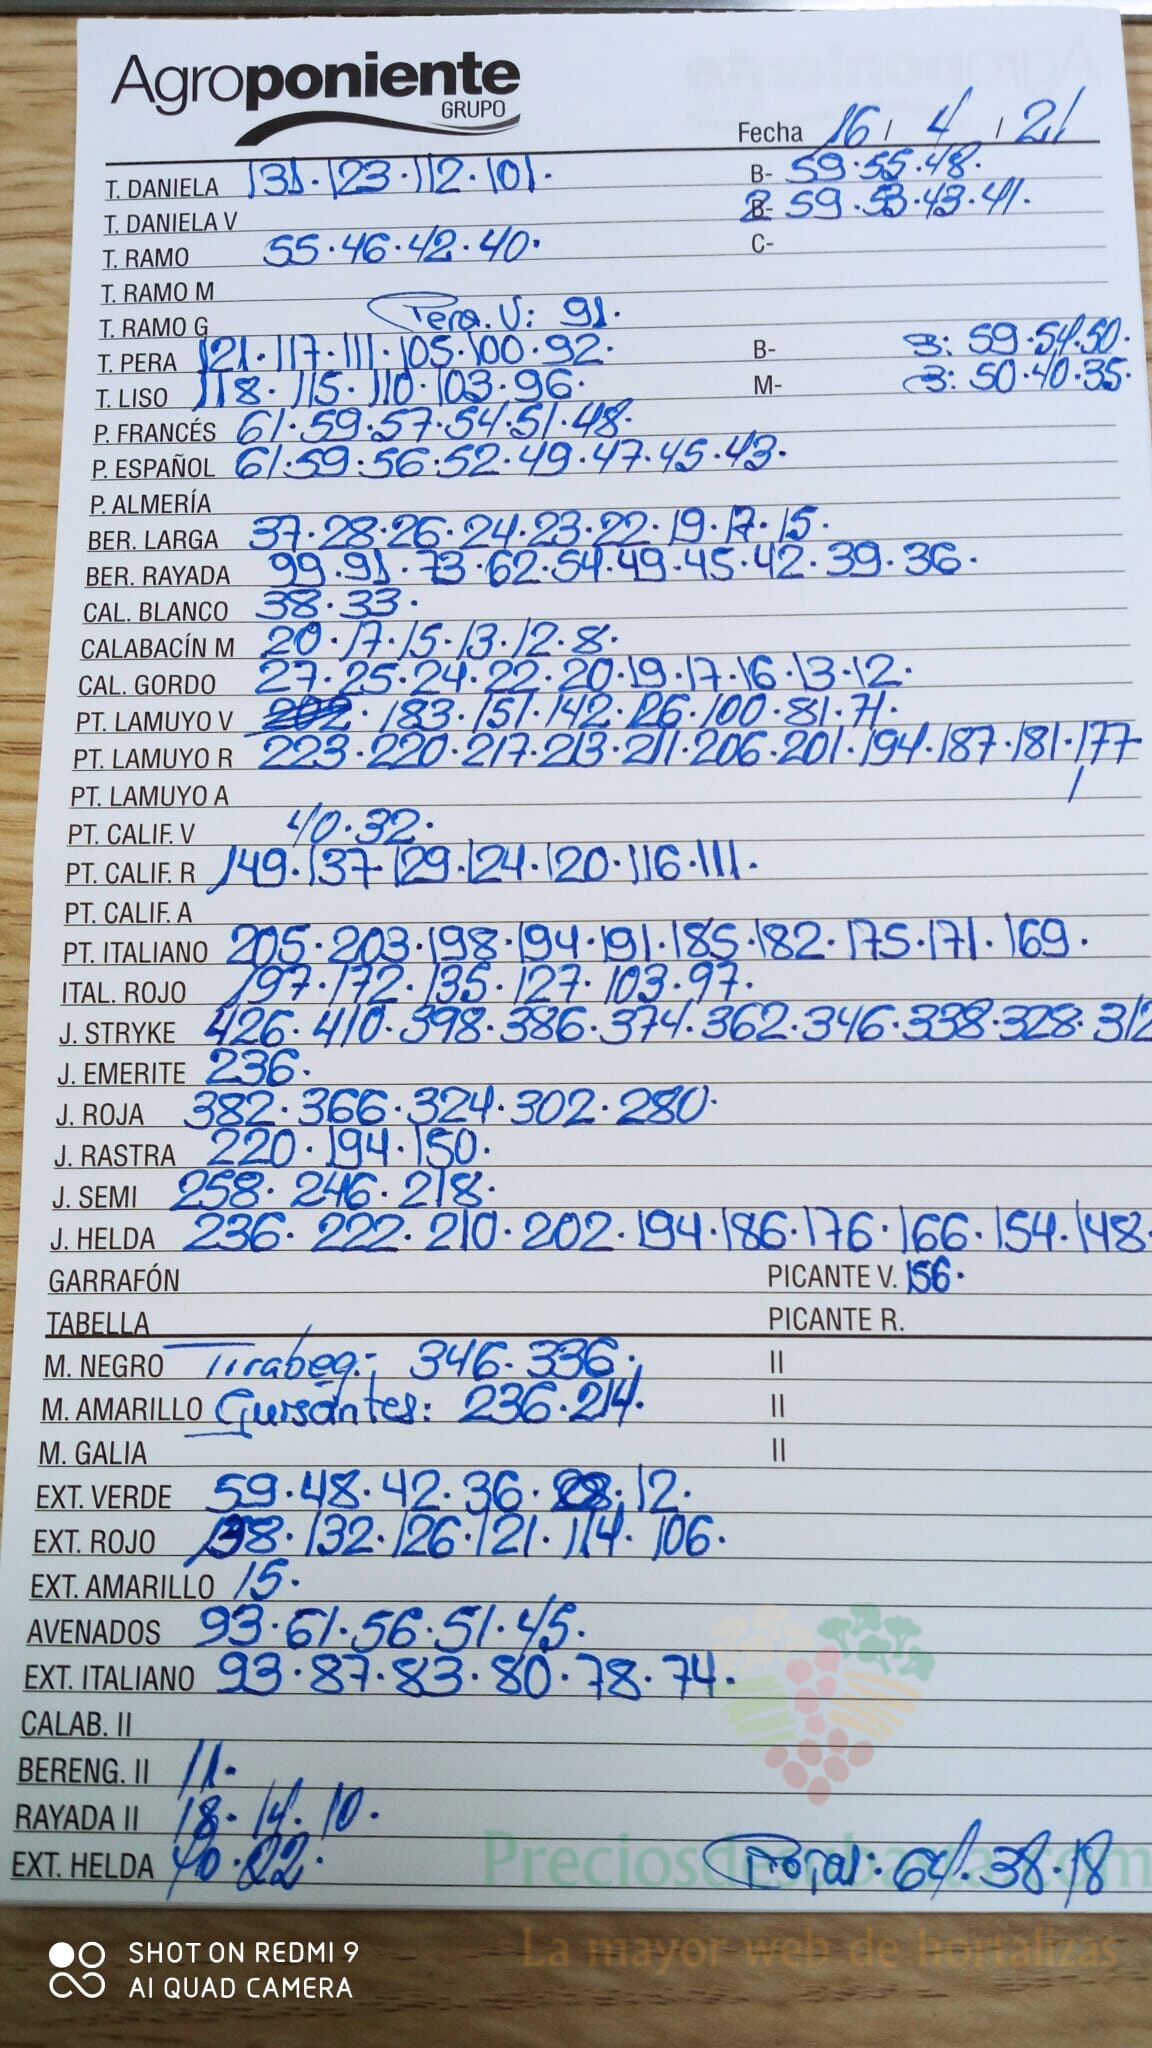 Agroponiente
GRUPO
Fecha 16 / 4 / 21
T. DANIELA 131. 123. 112. 101. B- 59.55.48.
T. DANIELA V 2 B- 59.53.43.41.
T. RAMO 55.46.42.40. C-
T. RAMO M
T. RAMO G Pera. V: 91.
T. PERA 121.117.111.105.100.92. B- 3: 59.54.50.
T. LISO 118. 115. 110. 103. 96. M- 3: 50.40.35.
P. FRANCÉS 61.59.57.54.51.48.
P. ESPAÑOL 61.59.56.52.49.47.45.43.
P. ALMERÍA
BER. LARGA 37.28.26.24.23.22.19.17.15.
BER. RAYADA 99.91.73.62.54.49.45.42.39.36.
CAL. BLANCO 38.33.
CALABACÍN M 20.17.15.13.12.8.
CAL. GORDO 27.25.24.22.20.19.17.16.13.12.
PT. LAMUYO V 183.151.142.126.100.81.71.
PT. LAMUYO R 223.220.217.213.211.206.201.194.187.181.177
PT. LAMUYO A
PT. CALIF. V 40.32.
PT. CALIF. R 149.137.129.124.120.116.111.
PT. CALIF. A
PT. ITALIANO 205.203.198.194.191.185.182.175.171.169.
ITAL. ROJO 197.172.135.127.103.97.
J. STRYKE 426.410.398.386.374.362.346.338.328.312
J. EMERITE 236.
J. ROJA 382.366.324.302.280.
J. RASTRA 220.194.150.
J. SEMI 258.246.218.
J. HELDA 236.222.210.202.194.186.176.166.154.148.
GARRAFÓN PICANTE V. 156.
TABELLA PICANTE R.
M. NEGRO Tirabeq.: 346.336. II
M. AMARILLO Guisantes: 236.214. II
M. GALIA II
EXT. VERDE 59.48.42.36.28.12.
EXT. ROJO 138.132.126.121.114.106.
EXT. AMARILLO 15.
AVENADOS 93.61.56.51.45.
EXT. ITALIANO 93.87.83.80.78.74.
CALAB. II
BERENG. II 11.
RAYADA II 18.14.10.
EXT. HELDA 40.22. 64.38.18
La mayor web de hortalizas
SHOT ON REDMI 9
AI QUAD CAMERA